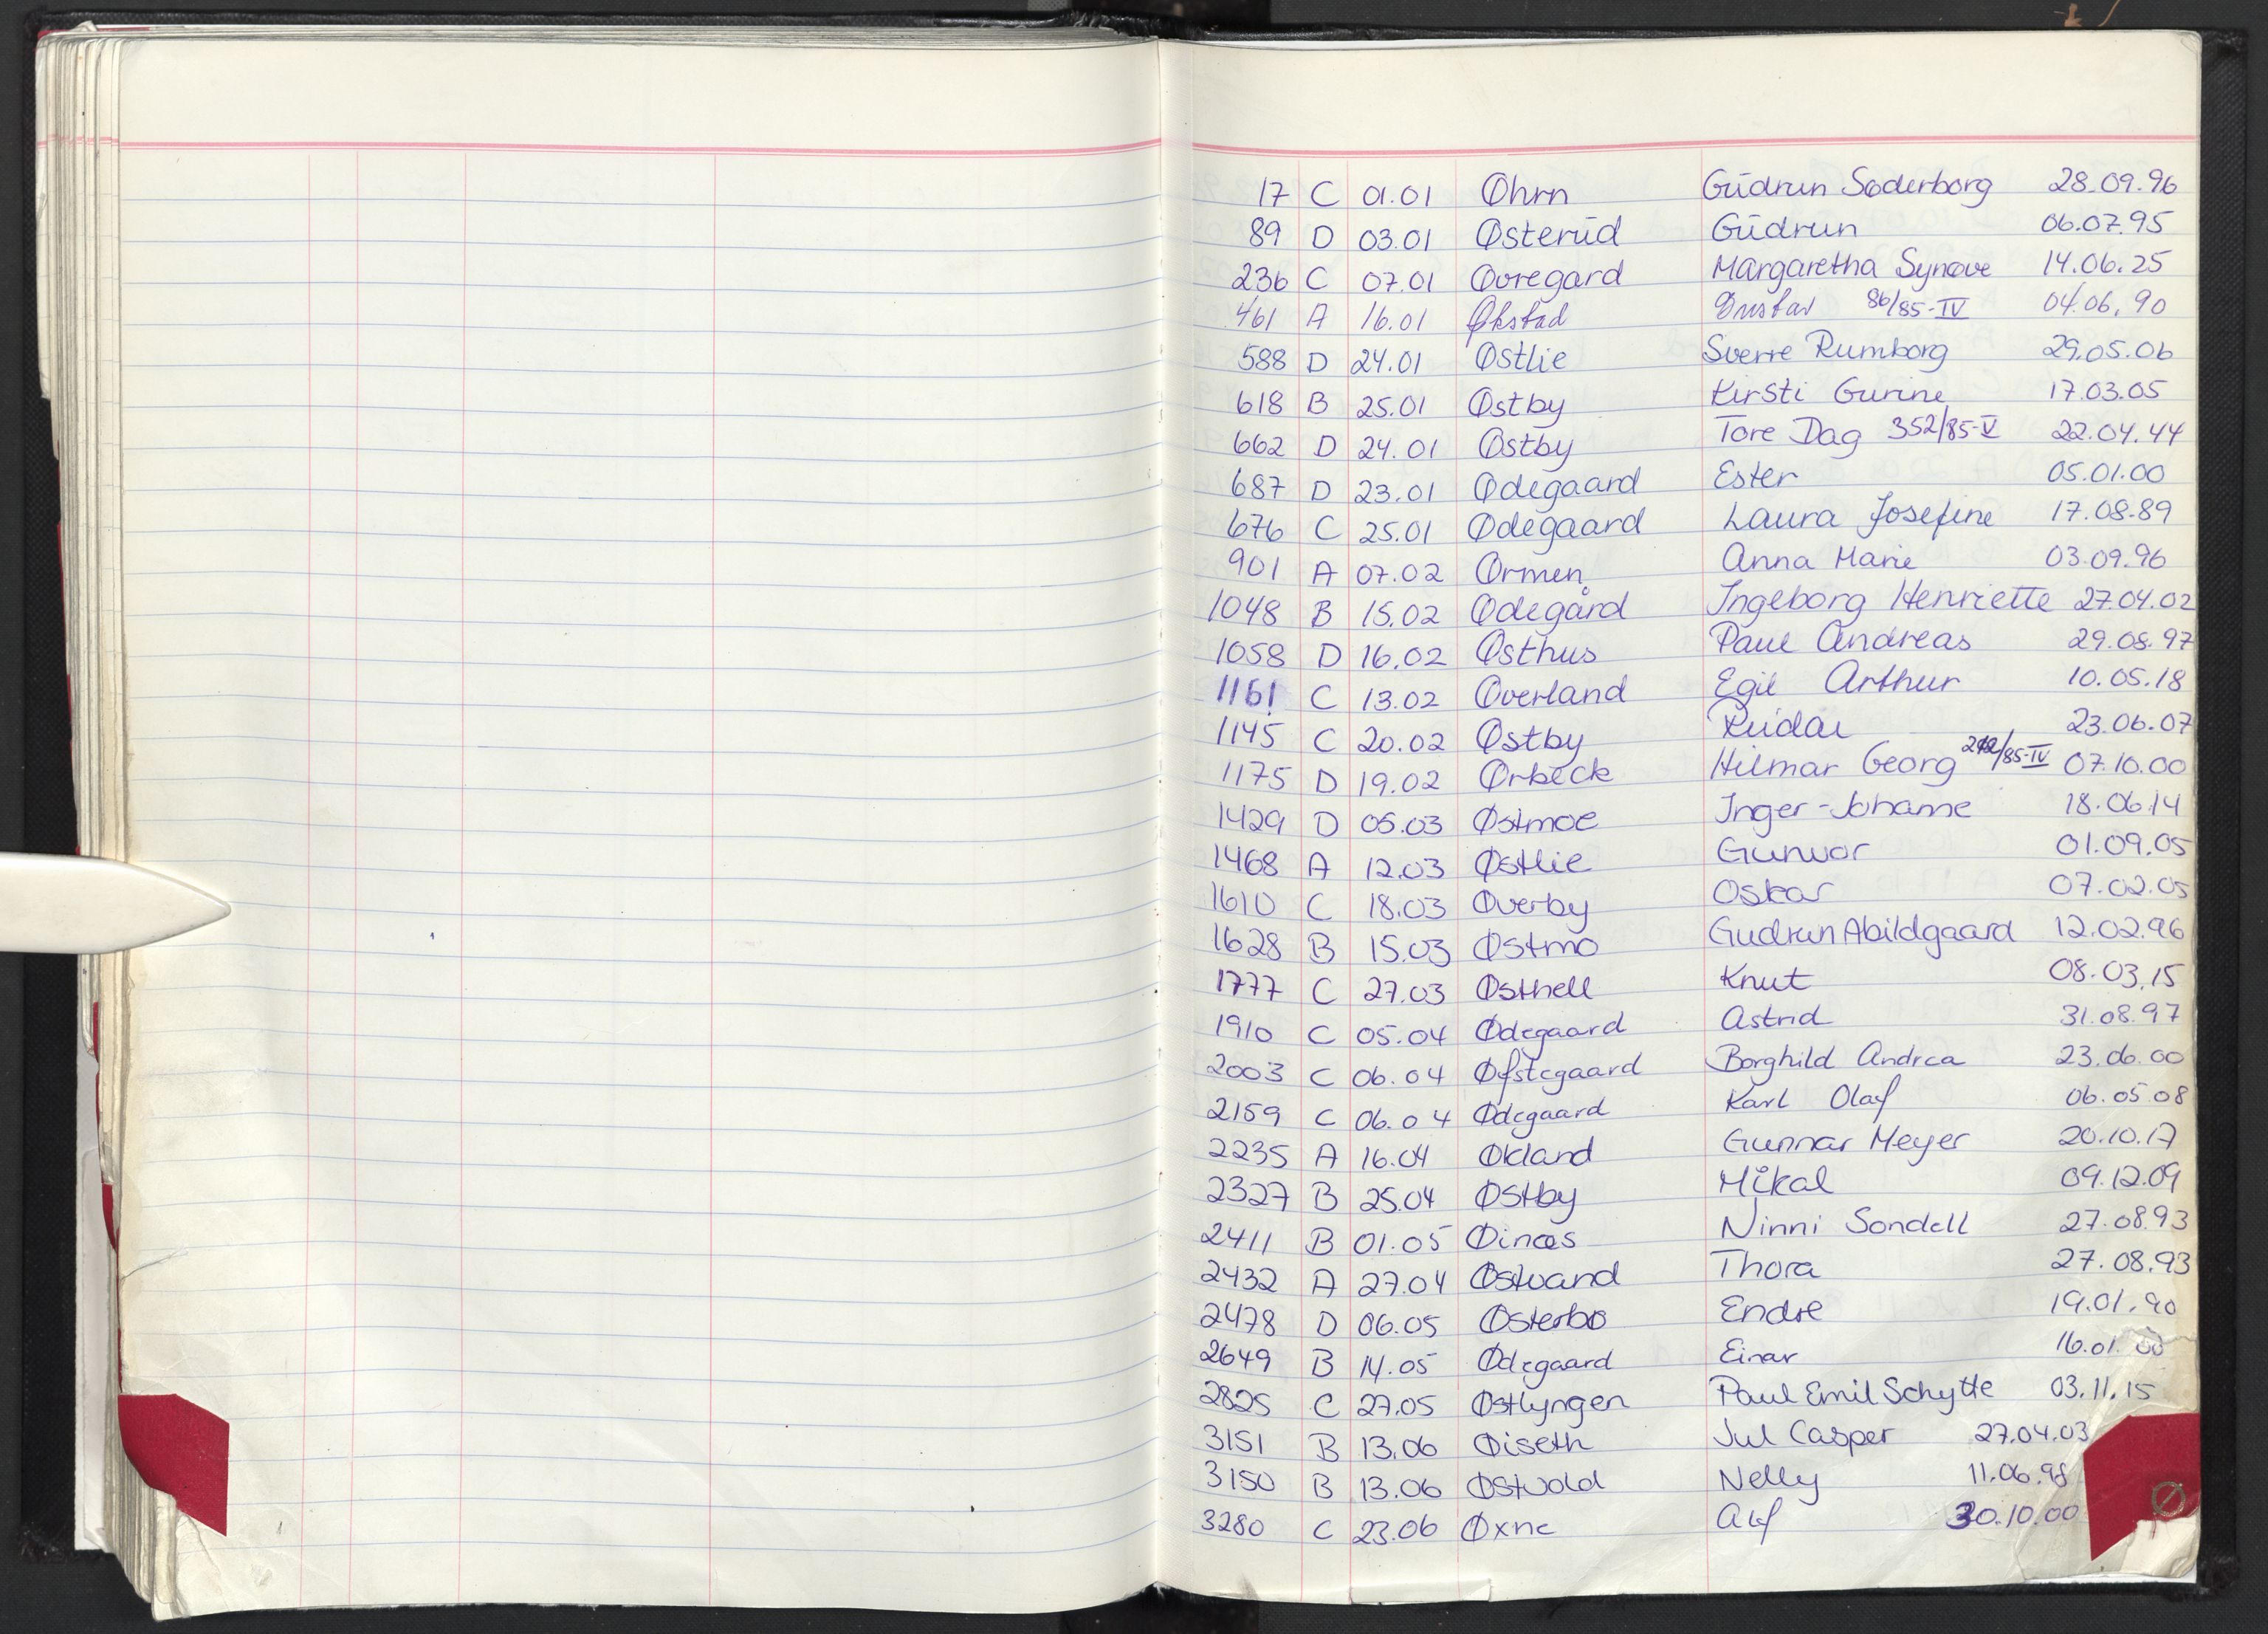 17 C 01.01 Øhrn Gudrun Søderborg 28.09.96
89 D 03.01 Østerud Gudrun 06.07.95
236 C 07.01 Øvregard Margaretha Synøve 14.06.25
461 A 16.01 Økstad Gustav 86/85-IV 04.06.90
588 D 24.01 Østlie Sverre Rumborg 29.05.06
618 B 25.01 Østby Kirsti Gurine 17.03.05
662 D 24.01 Østby Tore Dag 352/85-V 22.04.44
687 D 23.01 Ødegaard Ester 05.01.00
676 C 25.01 Ødegaard Laura Josefine 17.08.89
901 A 07.02 Ørmen Anna Marie 03.09.96
1048 B 15.02 Ødegård Ingeborg Henriette 27.04.02
1058 D 16.02 Østhus Paul Andreas 29.08.97
1161 C 13.02 Øverland Egil Arthur 10.05.18
1145 C 20.02 Østby Reidar 23.06.07
1175 D 19.02 Ørbeck Hilmar Georg /85-IV 07.10.00
1429 D 05.03 Østmoe Inger-Johanne 18.06.14
1468 A 12.03 Østlie Gunvor 01.09.05
1610 C 18.03 Øverby Oskar 07.02.05
1628 B 15.03 Østmo Gudrun Abildgaard 12.02.96
1777 C 27.03 Østhell Knut 08.03.15
1910 C 05.04 Ødegaard Astrid 31.08.97
2003 C 06.04 Øfstegaard Borghild Andrea 23.06.00
2159 C 06.04 Ødegaard Karl Olaf 06.05.08
2235 A 16.04 Økland Gunnar Meyer 20.10.17
2327 B 25.04 Østby Mikal 09.12.09
2411 B 01.05 Øinæs Ninni Sondell 27.08.93
2432 A 27.04 Østvand Thora 27.08.93
2478 D 06.05 Østerbø Endre 19.01.90
2649 B 14.05 Ødegaard Einar 16.01.00
2825 C 27.05 Østlyngen Paul Emil Schytte 03.11.15
3151 B 13.06 Øiseth Jul Casper 27.04.03
3150 B 13.06 Østvold Nelly 11.06.98
3280 C 23.06 Øxne Alf 30.10.00
Ø